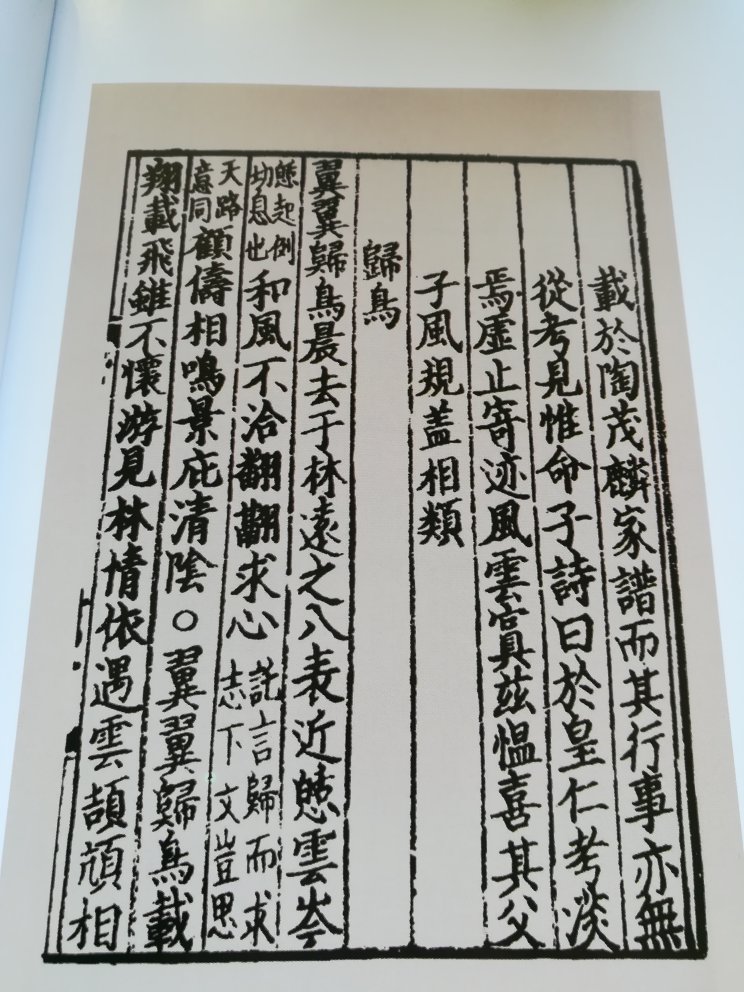 載於陶茂麟家譜而其行事亦無
從考見惟命子詩曰於皇仁考淡
焉虛止寄迹風雲寘茲愠喜其父
子風規蓋相類
歸鳥
翼翼歸鳥晨去于林遠之八表近憇雲岑
憇起例切息也和風不洽翻翮求心託言歸而求志下文豈思
天路意同顧儔相鳴景庇清陰○翼翼歸鳥載
翔載飛雖不懷游見林情依遇雲頡頏相